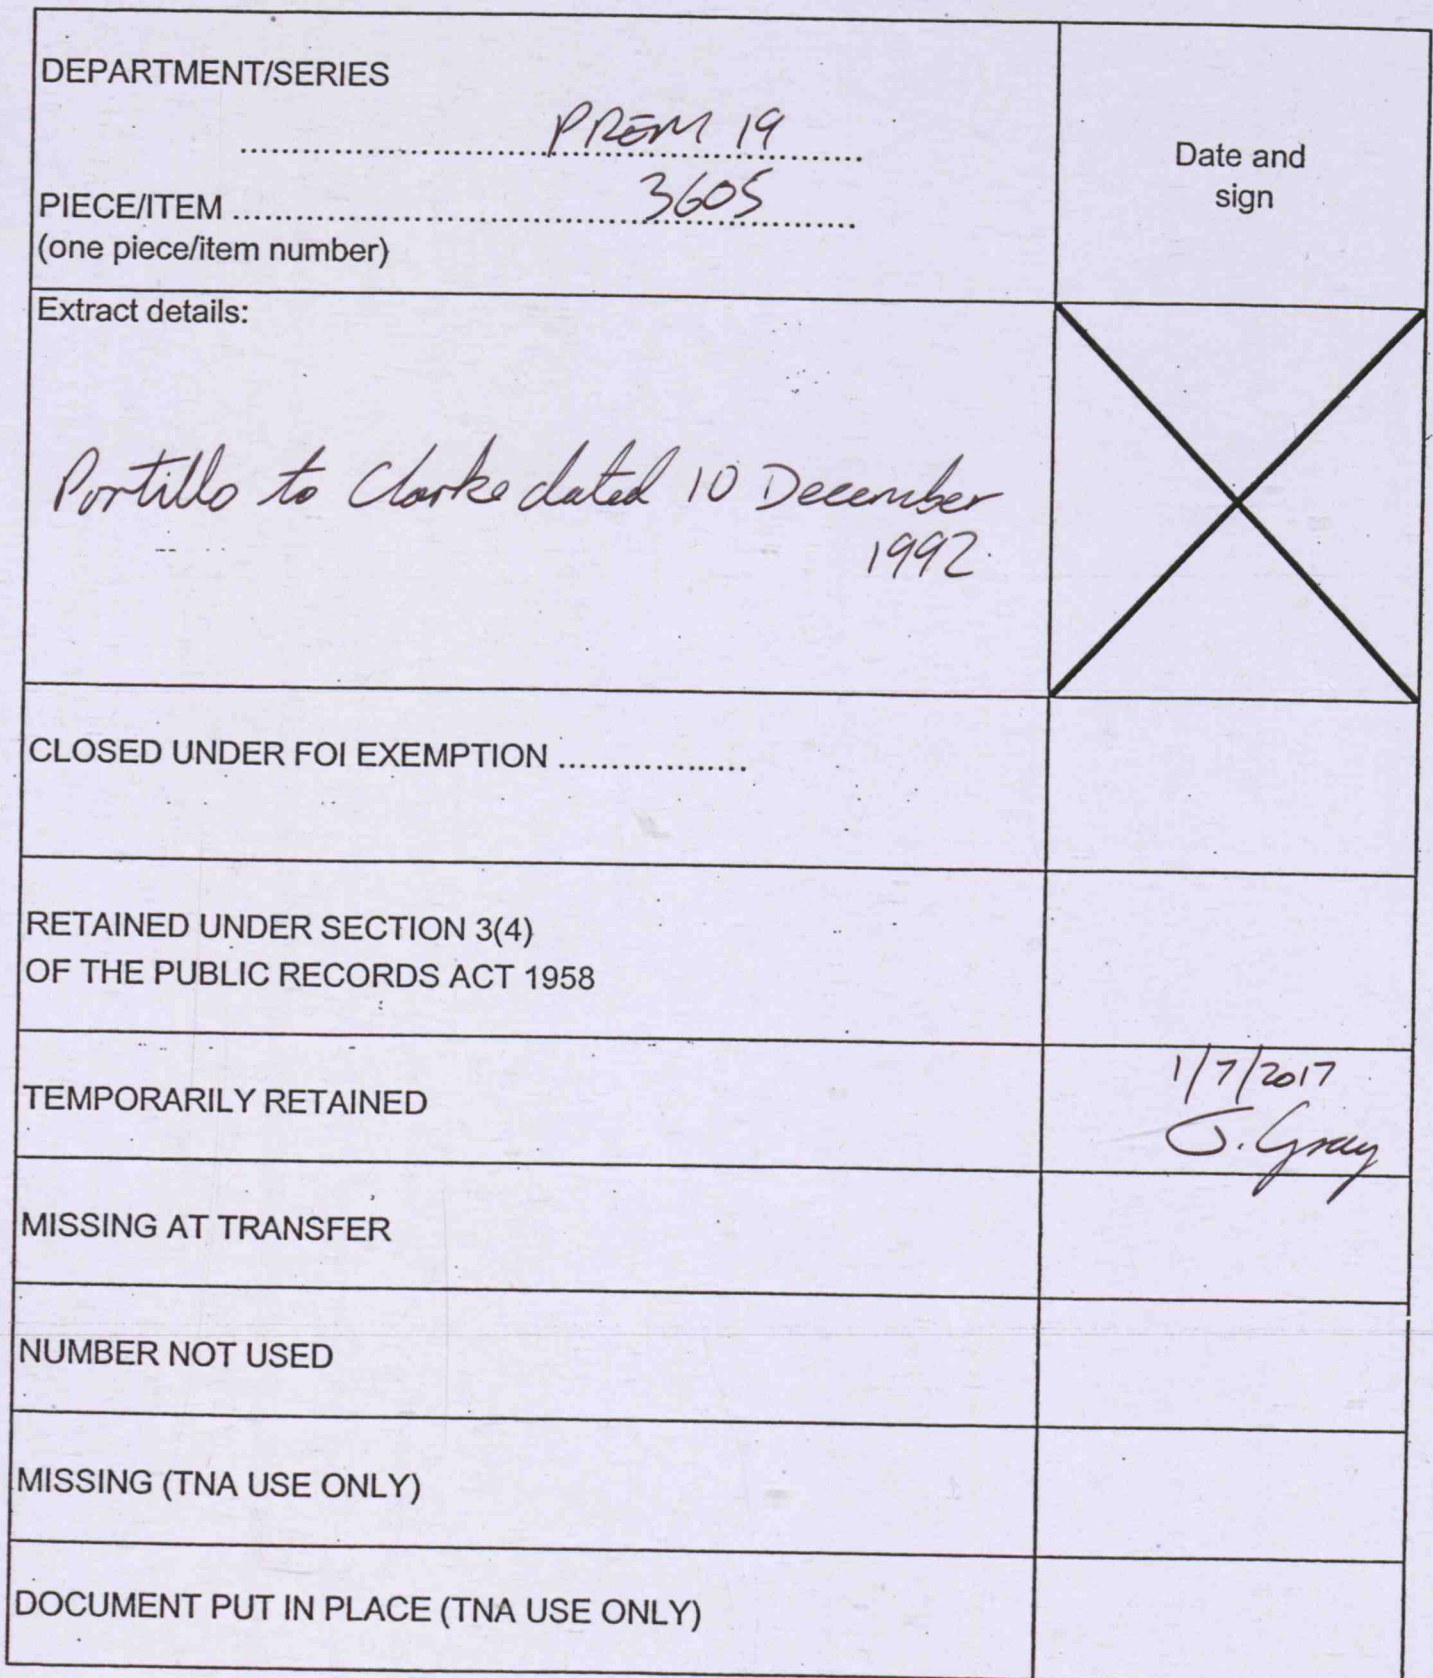 DEPARTMENT/SERIES
PREM 19
Date and
sign
PIECE/ITEM ........ 3605
(one piece/item number)
Extract details:
Portillo to Clarke dated 10 December
1992.
CLOSED UNDER FOI EXEMPTION ..................
RETAINED UNDER SECTION 3(4)
OF THE PUBLIC RECORDS ACT 1958
TEMPORARILY RETAINED
1/7/2017
J. Gray
MISSING AT TRANSFER
NUMBER NOT USED
MISSING (TNA USE ONLY)
DOCUMENT PUT IN PLACE (TNA USE ONLY)